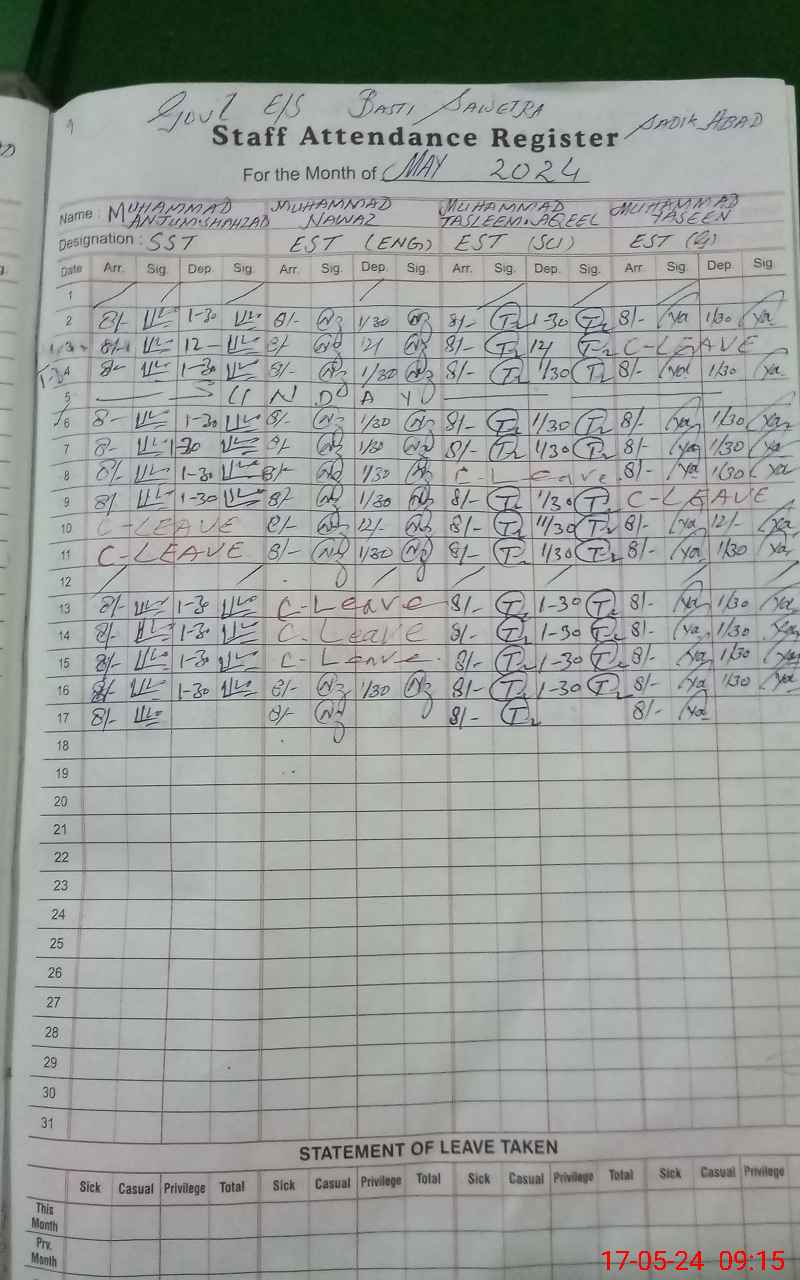 Govt E/S Basti Sawetra
Sadik Abad
Staff Attendance Register
For the Month of MAY 2024
Name : MUHAMMAD ANJUM SHAHZAD MUHAMMAD NAWAZ MUHAMMAD TASLEEM AQEEL MUHAMMAD YASEEN
Designation : SST EST (ENG) EST (SCI) EST (G)
Date Arr. Sig. Dep. Sig. Arr. Sig. Dep. Sig. Arr. Sig. Dep. Sig. Arr. Sig. Dep. Sig.
1
2 8/- 1-30 8/- 1/30 8/- 1-30 8/- 1/30
3 8/- 12- 8/- 12/ 8/- 12/ C-LEAVE
4 8- 1-30 8/- 1/30 8/- 1/30 8/- 1/30
5 SUNDAY
6 8- 1-30 8/- 1/30 8/- 1/30 8/- 1/30
7 8- 1-30 8/- 1/30 8/- 1/30 8/- 1/30
8 8/- 1-30 8/- 1/30 C-Leave 8/- 1/30
9 8/- 1-30 8/- 1/30 8/- 1/30 C-LEAVE
10 C-LEAVE 8/- 12/- 8/- 11/30 8/- 12/-
11 C-LEAVE 8/- 1/30 8/- 1/30 8/- 1/30
12
13 8/- 1-30 C-Leave 8/- 1-30 8/- 1/30
14 8/- 1-30 C-Leave 8/- 1-30 8/- 1/30
15 8/- 1-30 C-Leave 8/- 1-30 8/- 1/30
16 8/- 1-30 8/- 1/30 8/- 1-30 8/- 1/30
17 8/- 8/- 8/- 8/-
18
19
20
21
22
23
24
25
26
27
28
29
30
31
STATEMENT OF LEAVE TAKEN
Sick Casual Privilege Total Sick Casual Privilege Total Sick Casual Privilege Total Sick Casual Privilege
This Month
Prv. Month
17-05-24 09:15